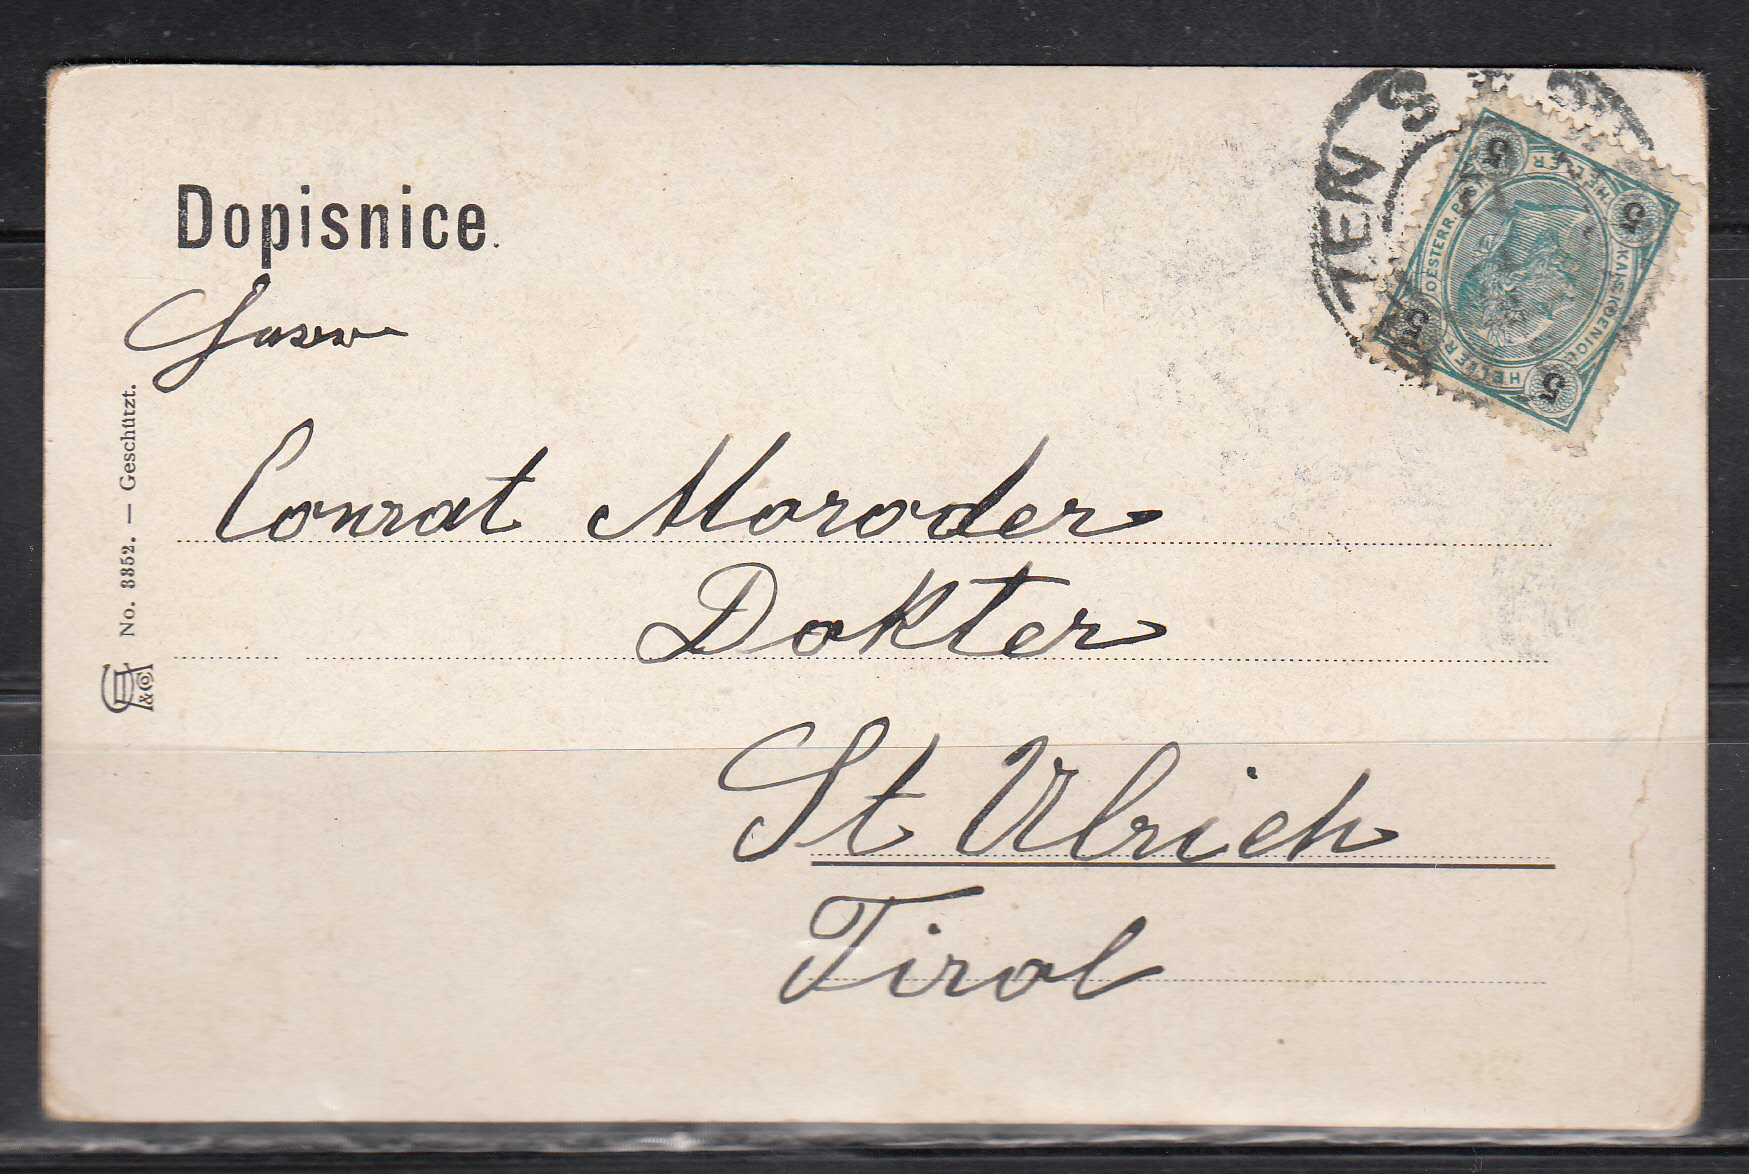 Dopisnice.
Conrat Moroder
Dokter
St Ulrich
Tirol
No. 3352. — Geschützt.
&Co
TEN S
KAIS. KOENIGL. OESTERR. POST
5 HELLER 5
5 HELLER 5